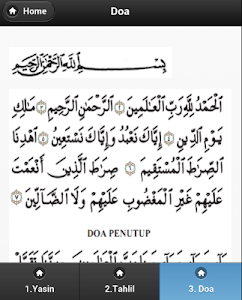 Home
Doa
بِسْمِ اللهِ الرَّحْمٰنِ الرَّحِيْمِ
اَلْحَمْدُ لِلّٰهِ رَبِّ الْعَالَمِيْنَ ﴿٢﴾ اَلرَّحْمٰنِ الرَّحِيْمِ ﴿٣﴾ مَالِكِ
يَوْمِ الدِّيْنِ ﴿٤﴾ إِيَّاكَ نَعْبُدُ وَإِيَّاكَ نَسْتَعِيْنُ ﴿٥﴾ اِهْدِنَا
الصِّرَاطَ الْمُسْتَقِيْمَ ﴿٦﴾ صِرَاطَ الَّذِيْنَ أَنْعَمْتَ
عَلَيْهِمْ غَيْرِ الْمَغْضُوْبِ عَلَيْهِمْ وَلَا الضَّالِّيْنَ ﴿٧﴾
DOA PENUTUP
1.Yasin
2.Tahlil
3. Doa